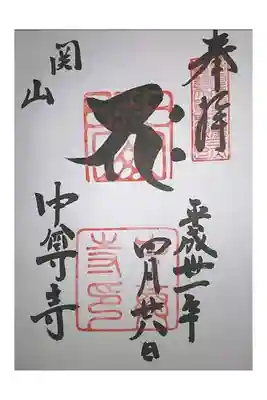 奉拝
平成丗一年
四月廿八日
関山
中尊寺